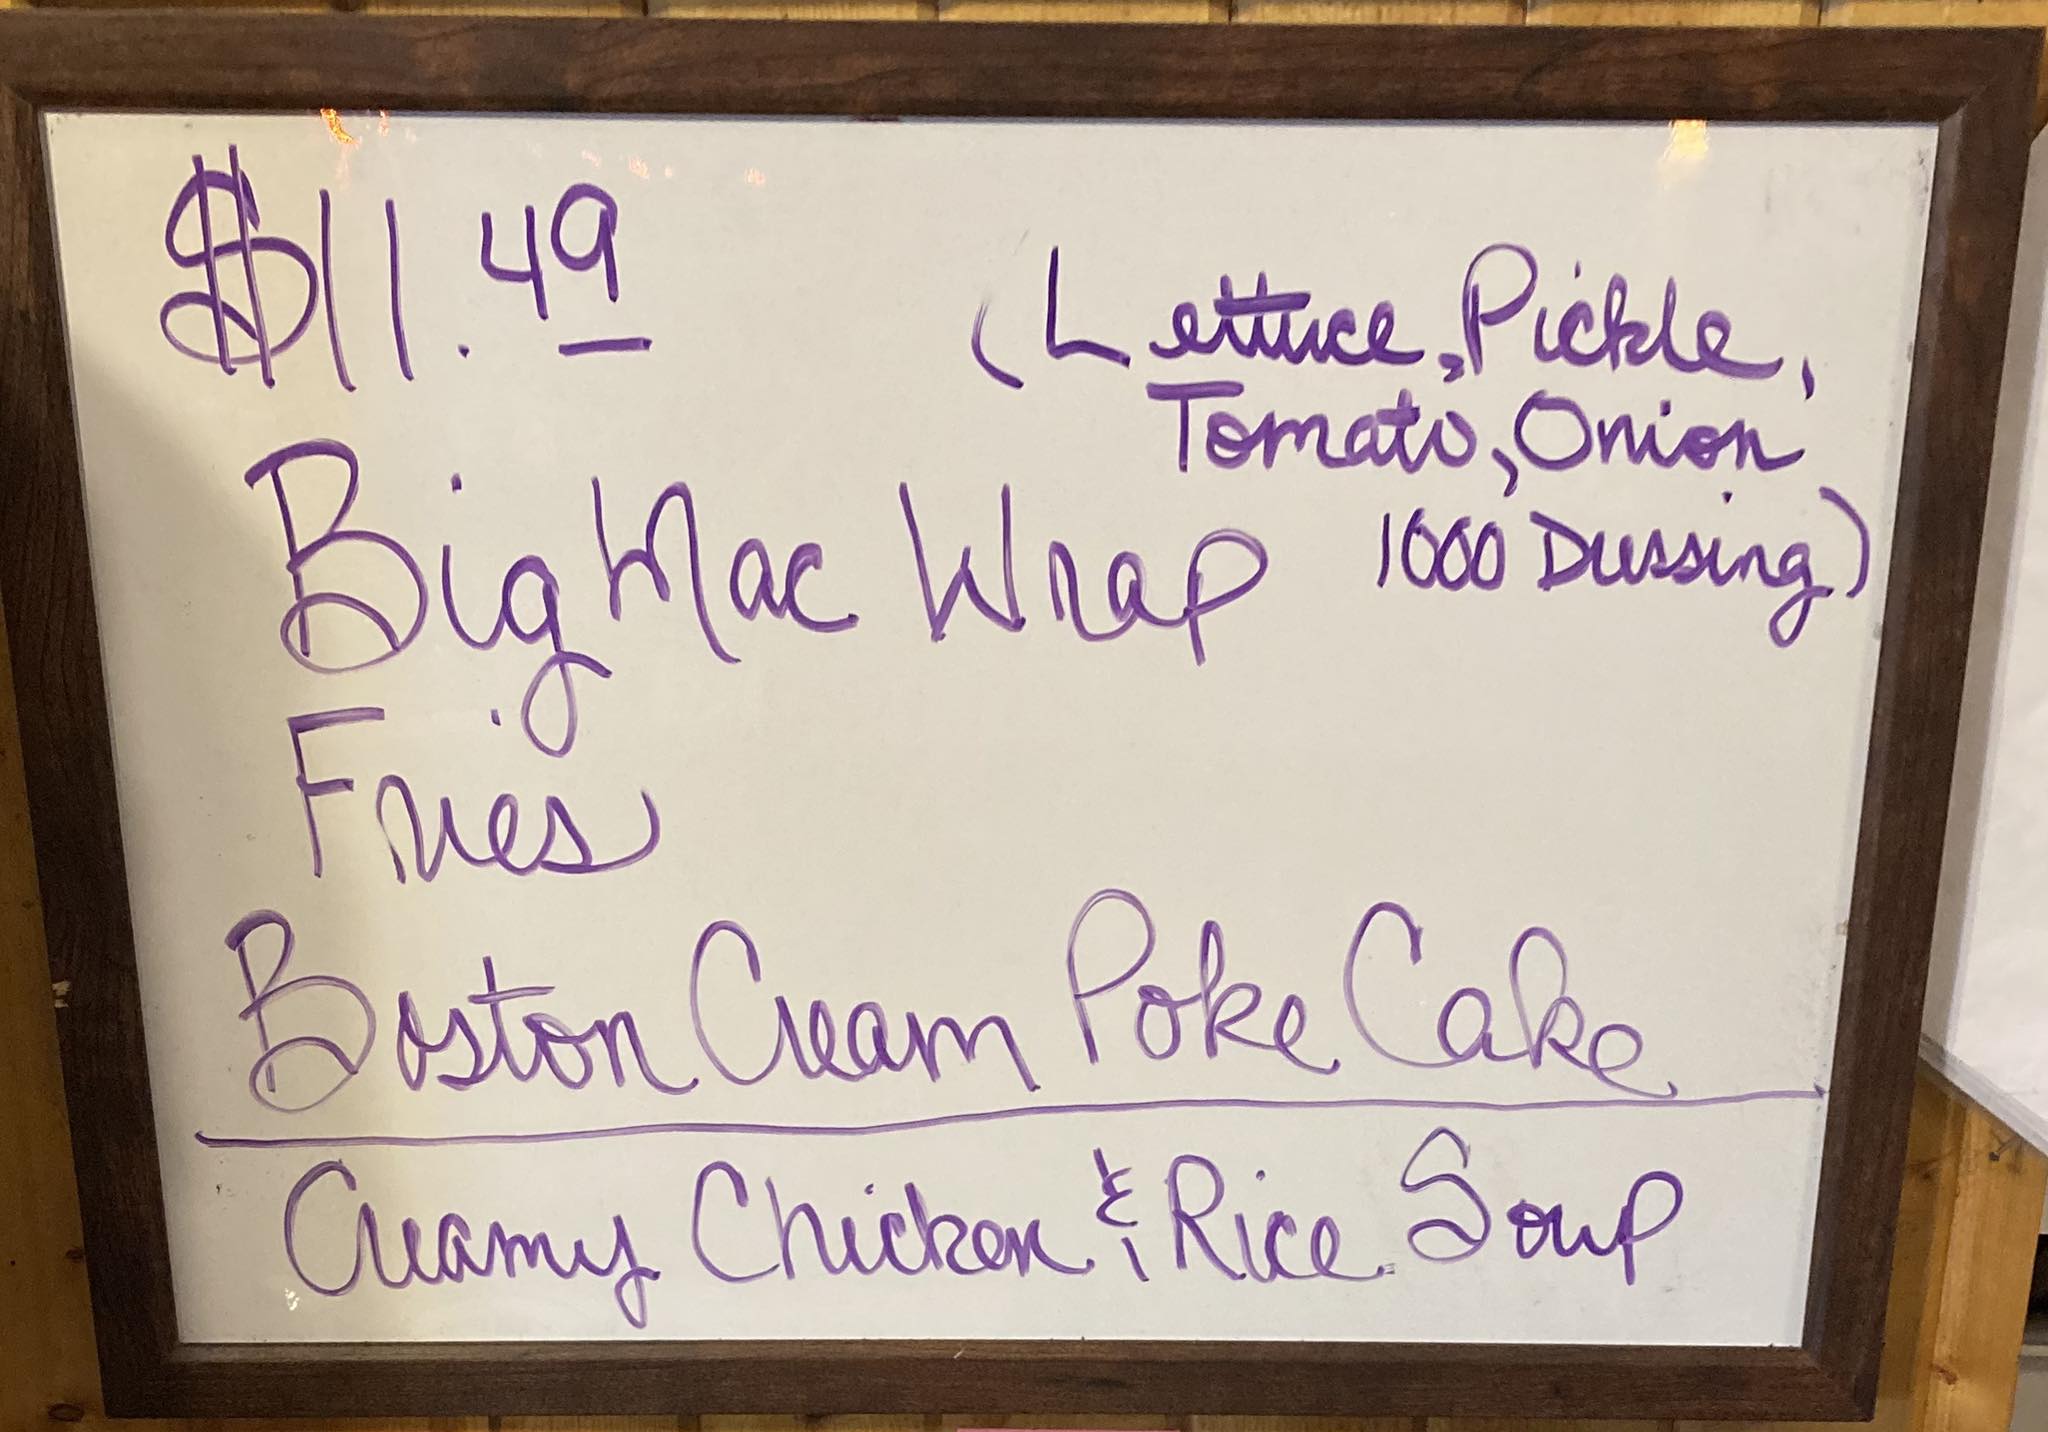 $11.49
(Lettuce, Pickle,
Tomato, Onion
1000 Dressing)
Big Mac Wrap
Fries
Boston Cream Poke Cake
Creamy Chicken & Rice Soup